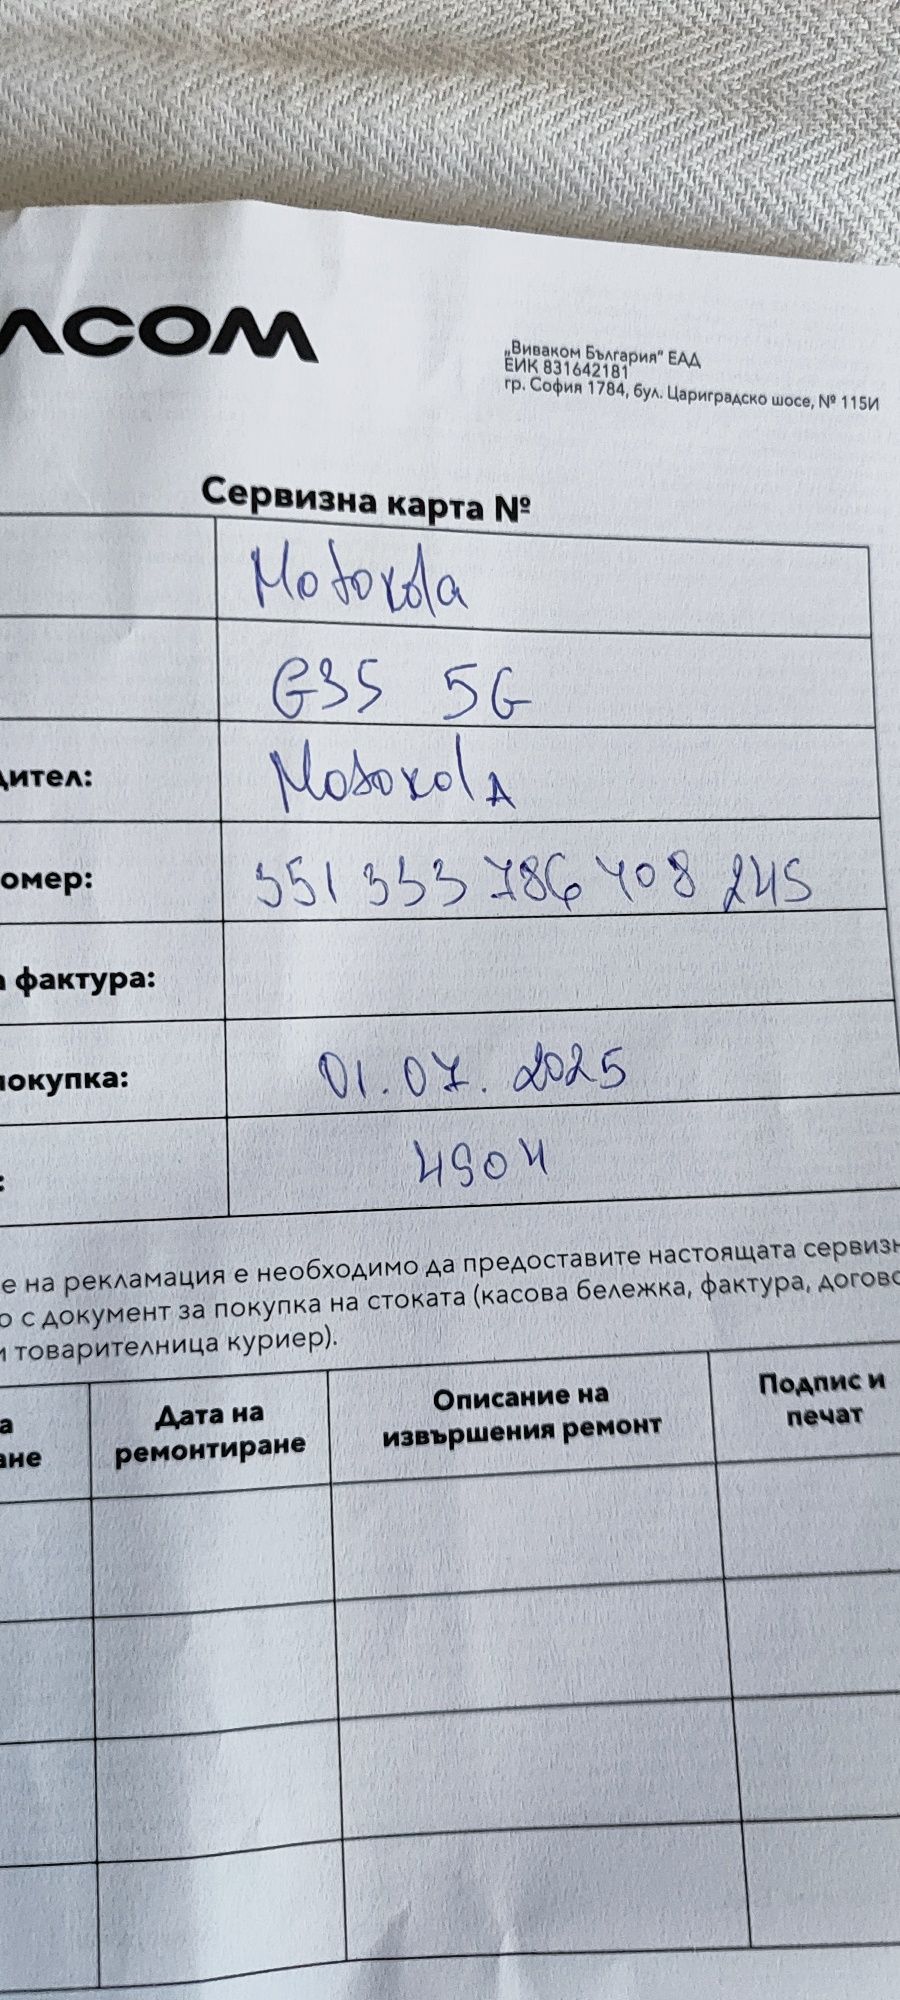 ACOM
„Виваком България" ЕАД
ЕИК 831642181
гр. София 1784, бул. Цариградско шосе, № 115И
Сервизна карта №
Motorola
G35 5G
дител: Motorola
омер: 351 333 786 408 245
а фактура:
покупка: 01.07.2025
: 4904
е на рекламация е необходимо да предоставите настоящата сервизн
о с документ за покупка на стоката (касова бележка, фактура, догово
и товарителница куриер).
а
ане
Дата на
ремонтиране
Описание на
извършения ремонт
Подпис и
печат